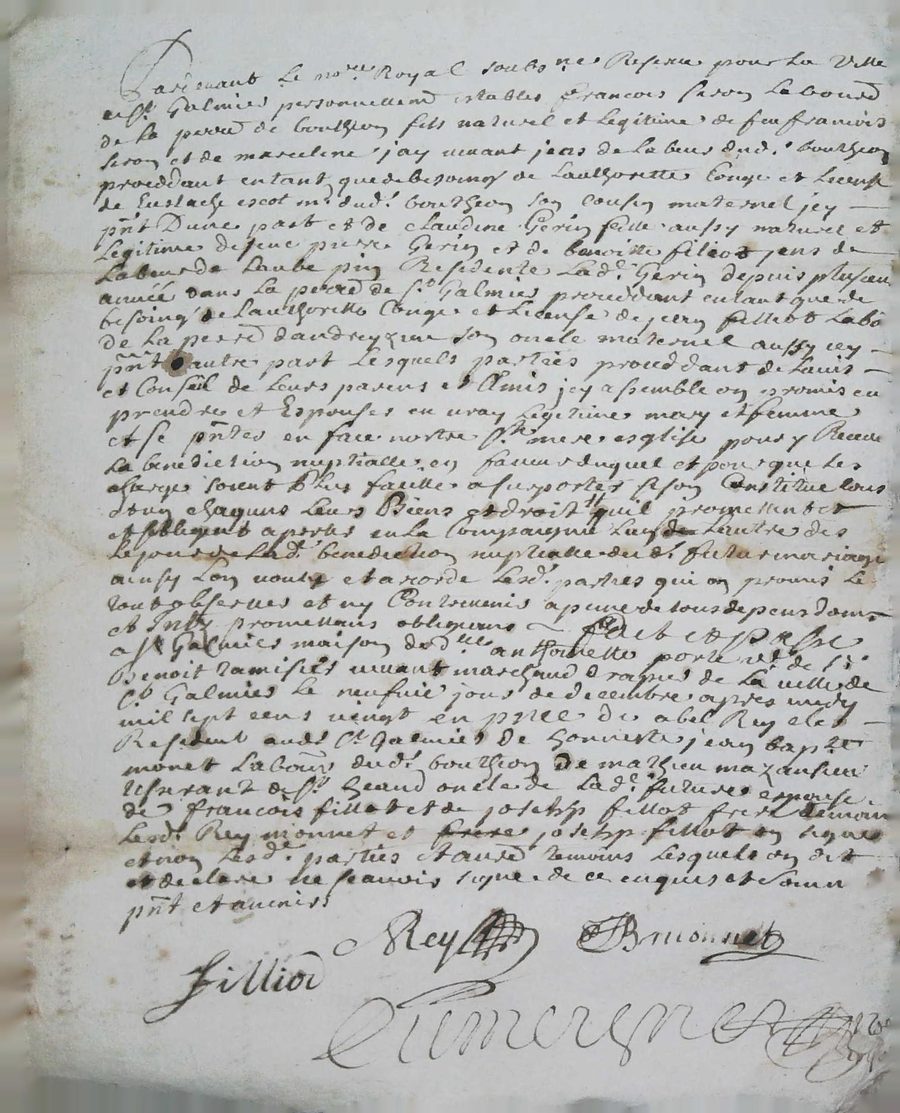 Pardevant le no.re Royal soubsne Reserve pour la ville
de St Galmier personnellem establis francois sieon labour
de la parr de bouthion fils naturel et legitime de feu francois
sieon et de marceline jay vivant jens de labeur dud. bouthion
proceddant entant que de besoing de lauthoritte Conge et license
de Eustache escot m. dud. bouthion son cousin maternel jey
pnt Dune part et de claudine Gerin fille aussy naturel et
Legitime de feue pierre Gerin et de benoitte filliot jens de
Labeur de Laube pin Residente Lad. Gerin depuis plusieu
année dans La parr de St Galmier proceddant entant que de
besoing de lauthoritte Conge et license de jean filliot labo
de la parr dandrezieu son oncle maternel aussy icy
pnt dautre part Lesquels parties proceddant de lavis
et Conseil de Leurs parens et Amis jey assemble on promis eu
prendre et Espouser en vray Legitime mary et femme
et se pnter en face nostre Ste mere esglise pour y Receve
La benediction nuptialle en faveur duquel et pour que les
charge soient plus facille a suporter se son Constitue tous
chaquns Leurs Biens et droit quil promettent et
obligent aporter en la Compagnie Lun de Lautre des
le jour de lad. benediction nuptialle dud. futur mariage
ainsy lon voulu et acorde lesd. parties qui on promis le
tout observer et ny Contrevenir a peine de tous depens dom
et Intz promettans obligeans fait et passe
a St Galmier maison de d.lle anthoinette porte
Benoit ramisier vivant marchand drapier de La ville de
St Galmier Le neufvie jour de decembre apres midy
mil sept cens vingt en pnce de abel Rey cler
Resident aud. St Galmier de honneste jean bapte
monet Labour dud. bouthion de mathieu mazansieu
tisserant de St heand oncle de Lad. future espouse
de francois fillot et de joseph fillot frere temoin
Lesd. Rey monnet et frere joseph fillot on signe
et non lesd. parties et autre temoins Lesquels on dit
et declare ne scavoir signe de ce enquis et somm
pnt et avenir
Rey JBmonnet
filliod